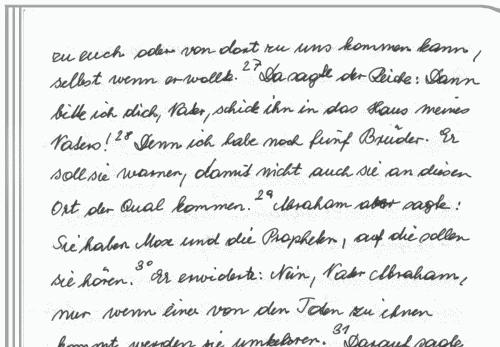 zu euch oder von dort zu uns kommen kann,
selbst wenn er wollte. 27 Da sagte der Reiche: Dann
bitte ich dich, Vater, schick ihn in das Haus meines
Vaters! 28 Denn ich habe noch fünf Brüder. Er
soll sie warnen, damit nicht auch sie an diesen
Ort der Qual kommen. 29 Abraham aber sagte:
Sie haben Mose und die Propheten, auf die sollen
sie hören. 30 Er erwiderte: Nein, Vater Abraham,
nur wenn einer von den Toten zu ihnen
kommt, werden sie umkehren. 31 Darauf sagte